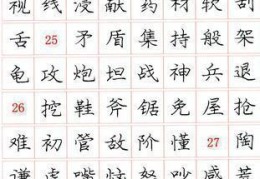 视 线 浸 献 药 材 软 刮
舌 25 矛 盾 集 持 般 架
龟 攻 炮 坦 战 神 兵 退
26 挖 鞋 斧 锯 免 屋 抢
难 初 管 敌 阶 懂 27 陶
谦 虚 嘴 恼 怒 吵 感 荒